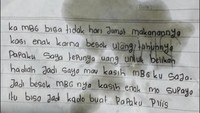 ka MBG bisa tidak hari Jumat makanannya
kasi enak karna besok ulang tahunnya
Papaku saya tepunya uang untuk belikan
hadiah Jadi saya mau kasih MBG ku saja.
Jadi besok MBG nya kasih enak mo supaya
itu bisa Jad kado buat Papaku Pliis